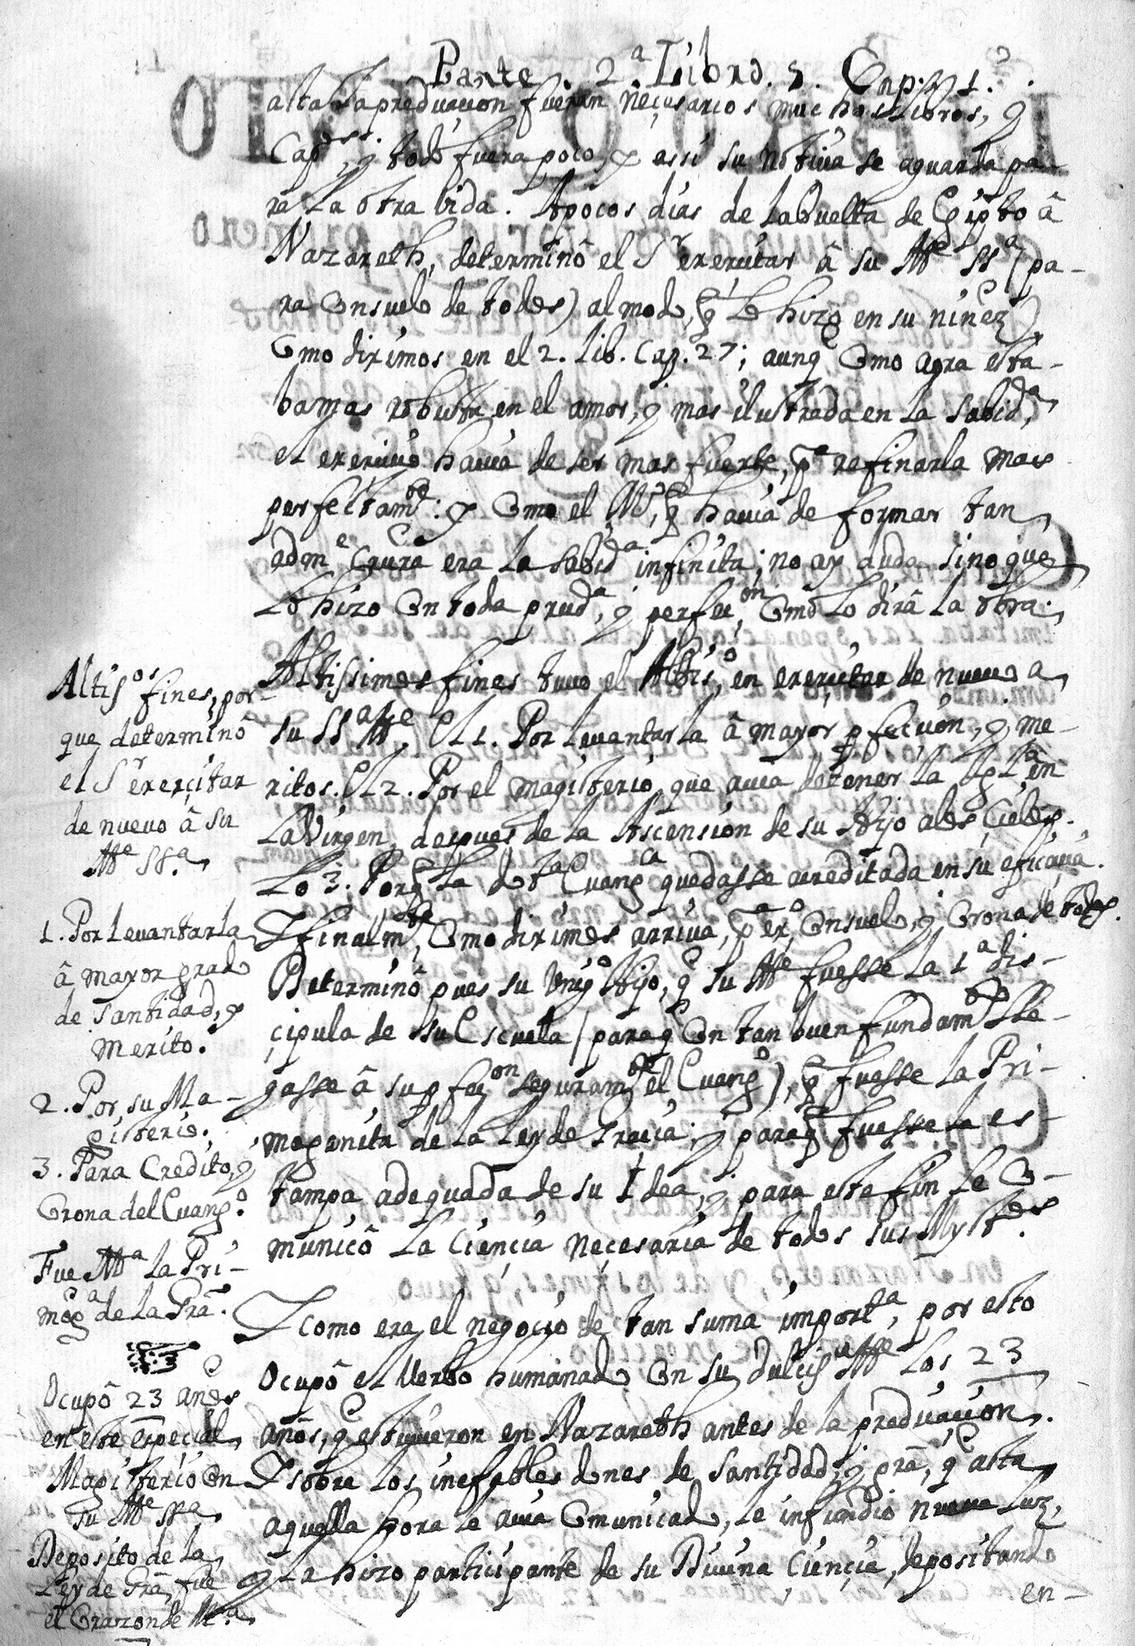 Parte. 2.ª Libro. 5. Cap: 1.º
asta la predicacion fueran neçesarios muchos Libros, y
Cap.es, y todo fuera poco, y assi su notiçia se aguarda pa-
ra La otra vida. Apocos dias de la buelta de Egipto â
Nazareth, determinô el S.r exerçitar â su M.e SS.ª (pa-
ra Consuelo de todos) al modo, q̃ Lo hizo en su niñez,
Como diximos en el 2. Lib. Cap. 27; aunq̃ Como agra esta-
ba mas robusta en el amor, y mas ilustrada en la Sabid.ª,
el exerçiçio hauia de ser mas fuerte, p.ª refinarla mas
perfectam.te: y Como el M.º, q̃ hauia de formar tan
adm.e Criat.ra era la Sabid.ª infinita; no ay duda sino que
Lo hizo Con toda prud.ª, y perfec.on Como Lo dirâ la obra.
Altissimos fines tuuo el Altis.º, en exerçitar de nueuo a
su SS.ª M.e. El 1. Por Levantarla â mayor pfecçion, y me-
ritos. El 2. Por el magisterio, que auia de tener la Igl.ª en
La Virgen, despues de la Ascension de su Hijo a los Cielos.
Lo 3. Porq̃ la d.ª Euang.ca quedasse acreditada en su eficaçia.
Y finalm.te, Como diximos arriua, p.ª ex.º, Consuelo, y Corona de todos.
Determinô pues su Vnig.º Hijo, q̃ su M.e fuesse la 1.ª dis-
çipula de su Escuela (para q̃ Con tan buen fundam.to lle-
gasse â su pfec.on seguram.te el Euang.º), q̃ fuesse la Pri-
mogenita de la Ley de Graçia; y para q̃ fuesse la es-
tampa adequada de su Idea, y para este fin le Co-
municô La Ciençia neçesaria de todos sus Myst.os.
Y como era el negoçio de tan suma import.ª, por esto
Ocupô el Verbo humanado Con su dulcis.ma M.e Los 23
años, q̃ estuuieron en Nazareth antes de la predicaçion.
Y sobre los inefables dones de Santidad, y grã, q̃ asta
aquella hora le auia Comunicado, le infundio nueua Luz,
y La hizo partiçipante de su Diuina Çiençia, depositando
en-
Altis.os fines, por-
que determinô
el S.r exerçitar
de nuevo â su
M.e SS.ª
1. Por Levantarla
â mayor grado
de Santidad, y
merito.
2. Por su Ma-
gisterio.
3. Para Credito, y
Corona del Euang.º
Fue M.ª la Pri-
mog.ª de la Grã.
Ocupô 23 años
en este espeçial
Magisterio Con
su M.e SS.ª
Deposito de la
Ley de Grã, fue
el Corazon de M.ª